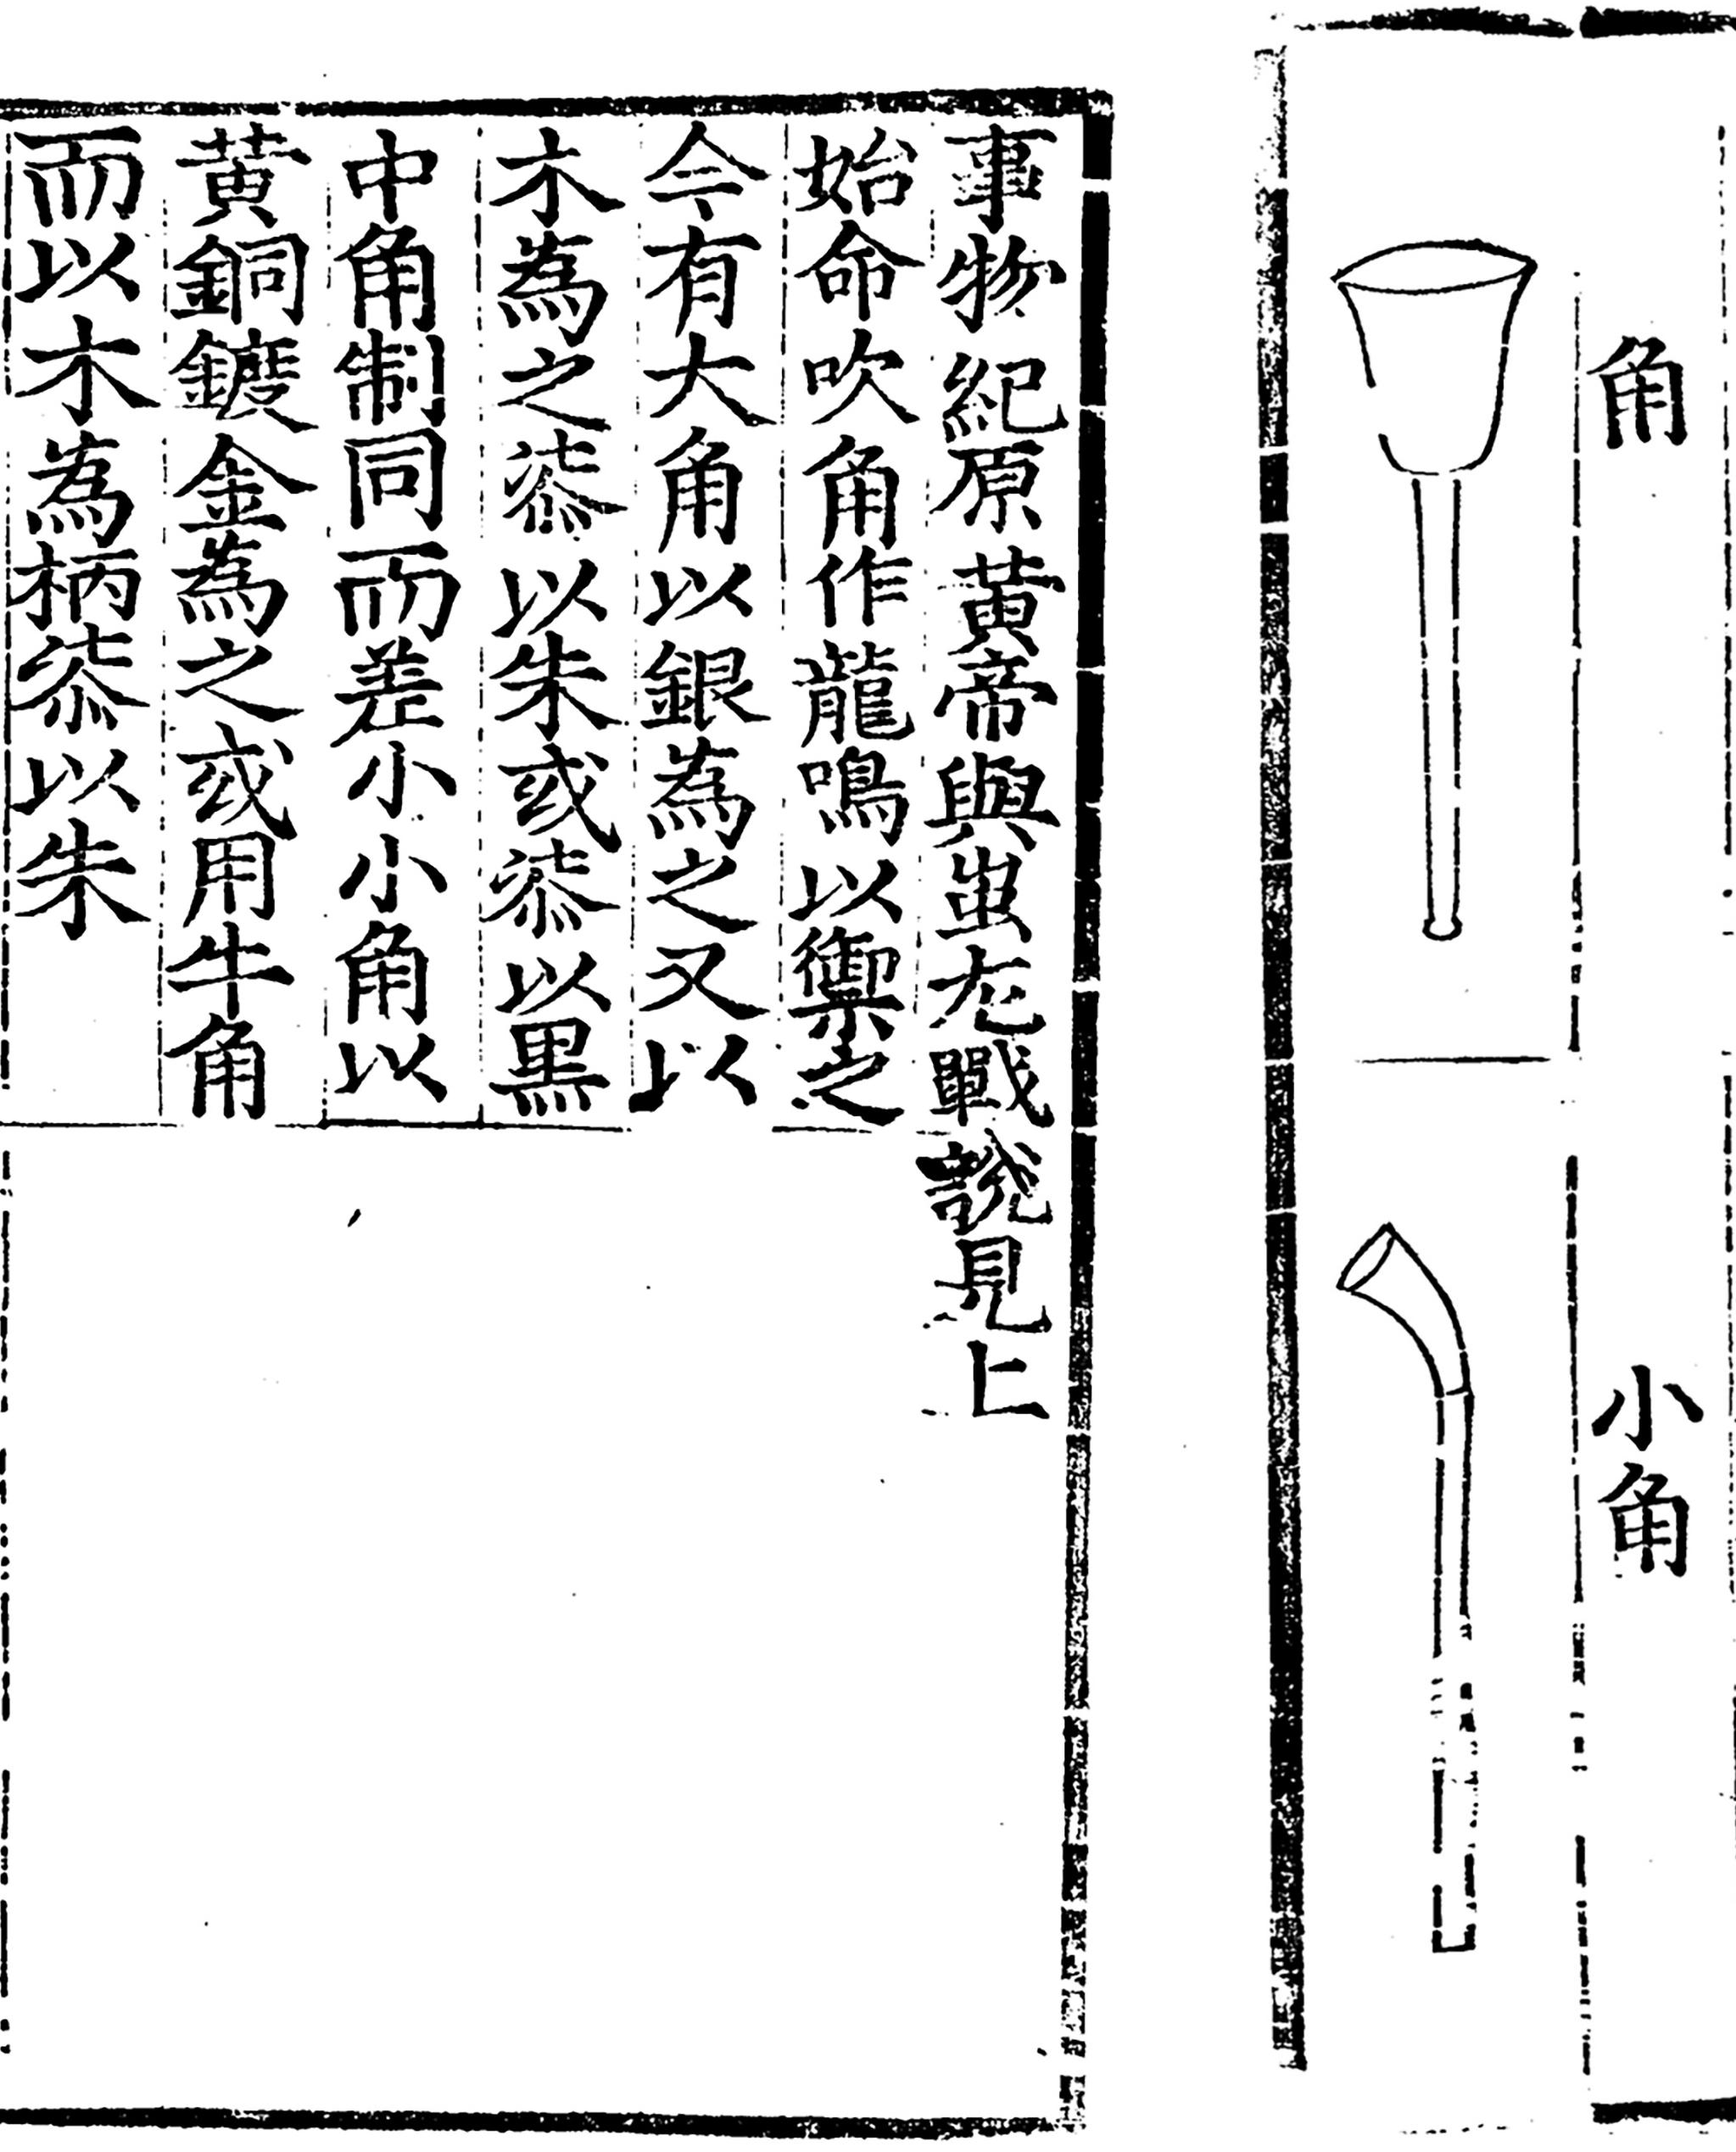 角
小角
事物紀原黃帝與蚩尤戰說見上
始命吹角作龍鳴以禦之
今有大角以銀為之又以
木為之桼以朱或桼以黑
中角制同而差小小角以
黃銅鍍金為之或用牛角
而以木為柄桼以朱